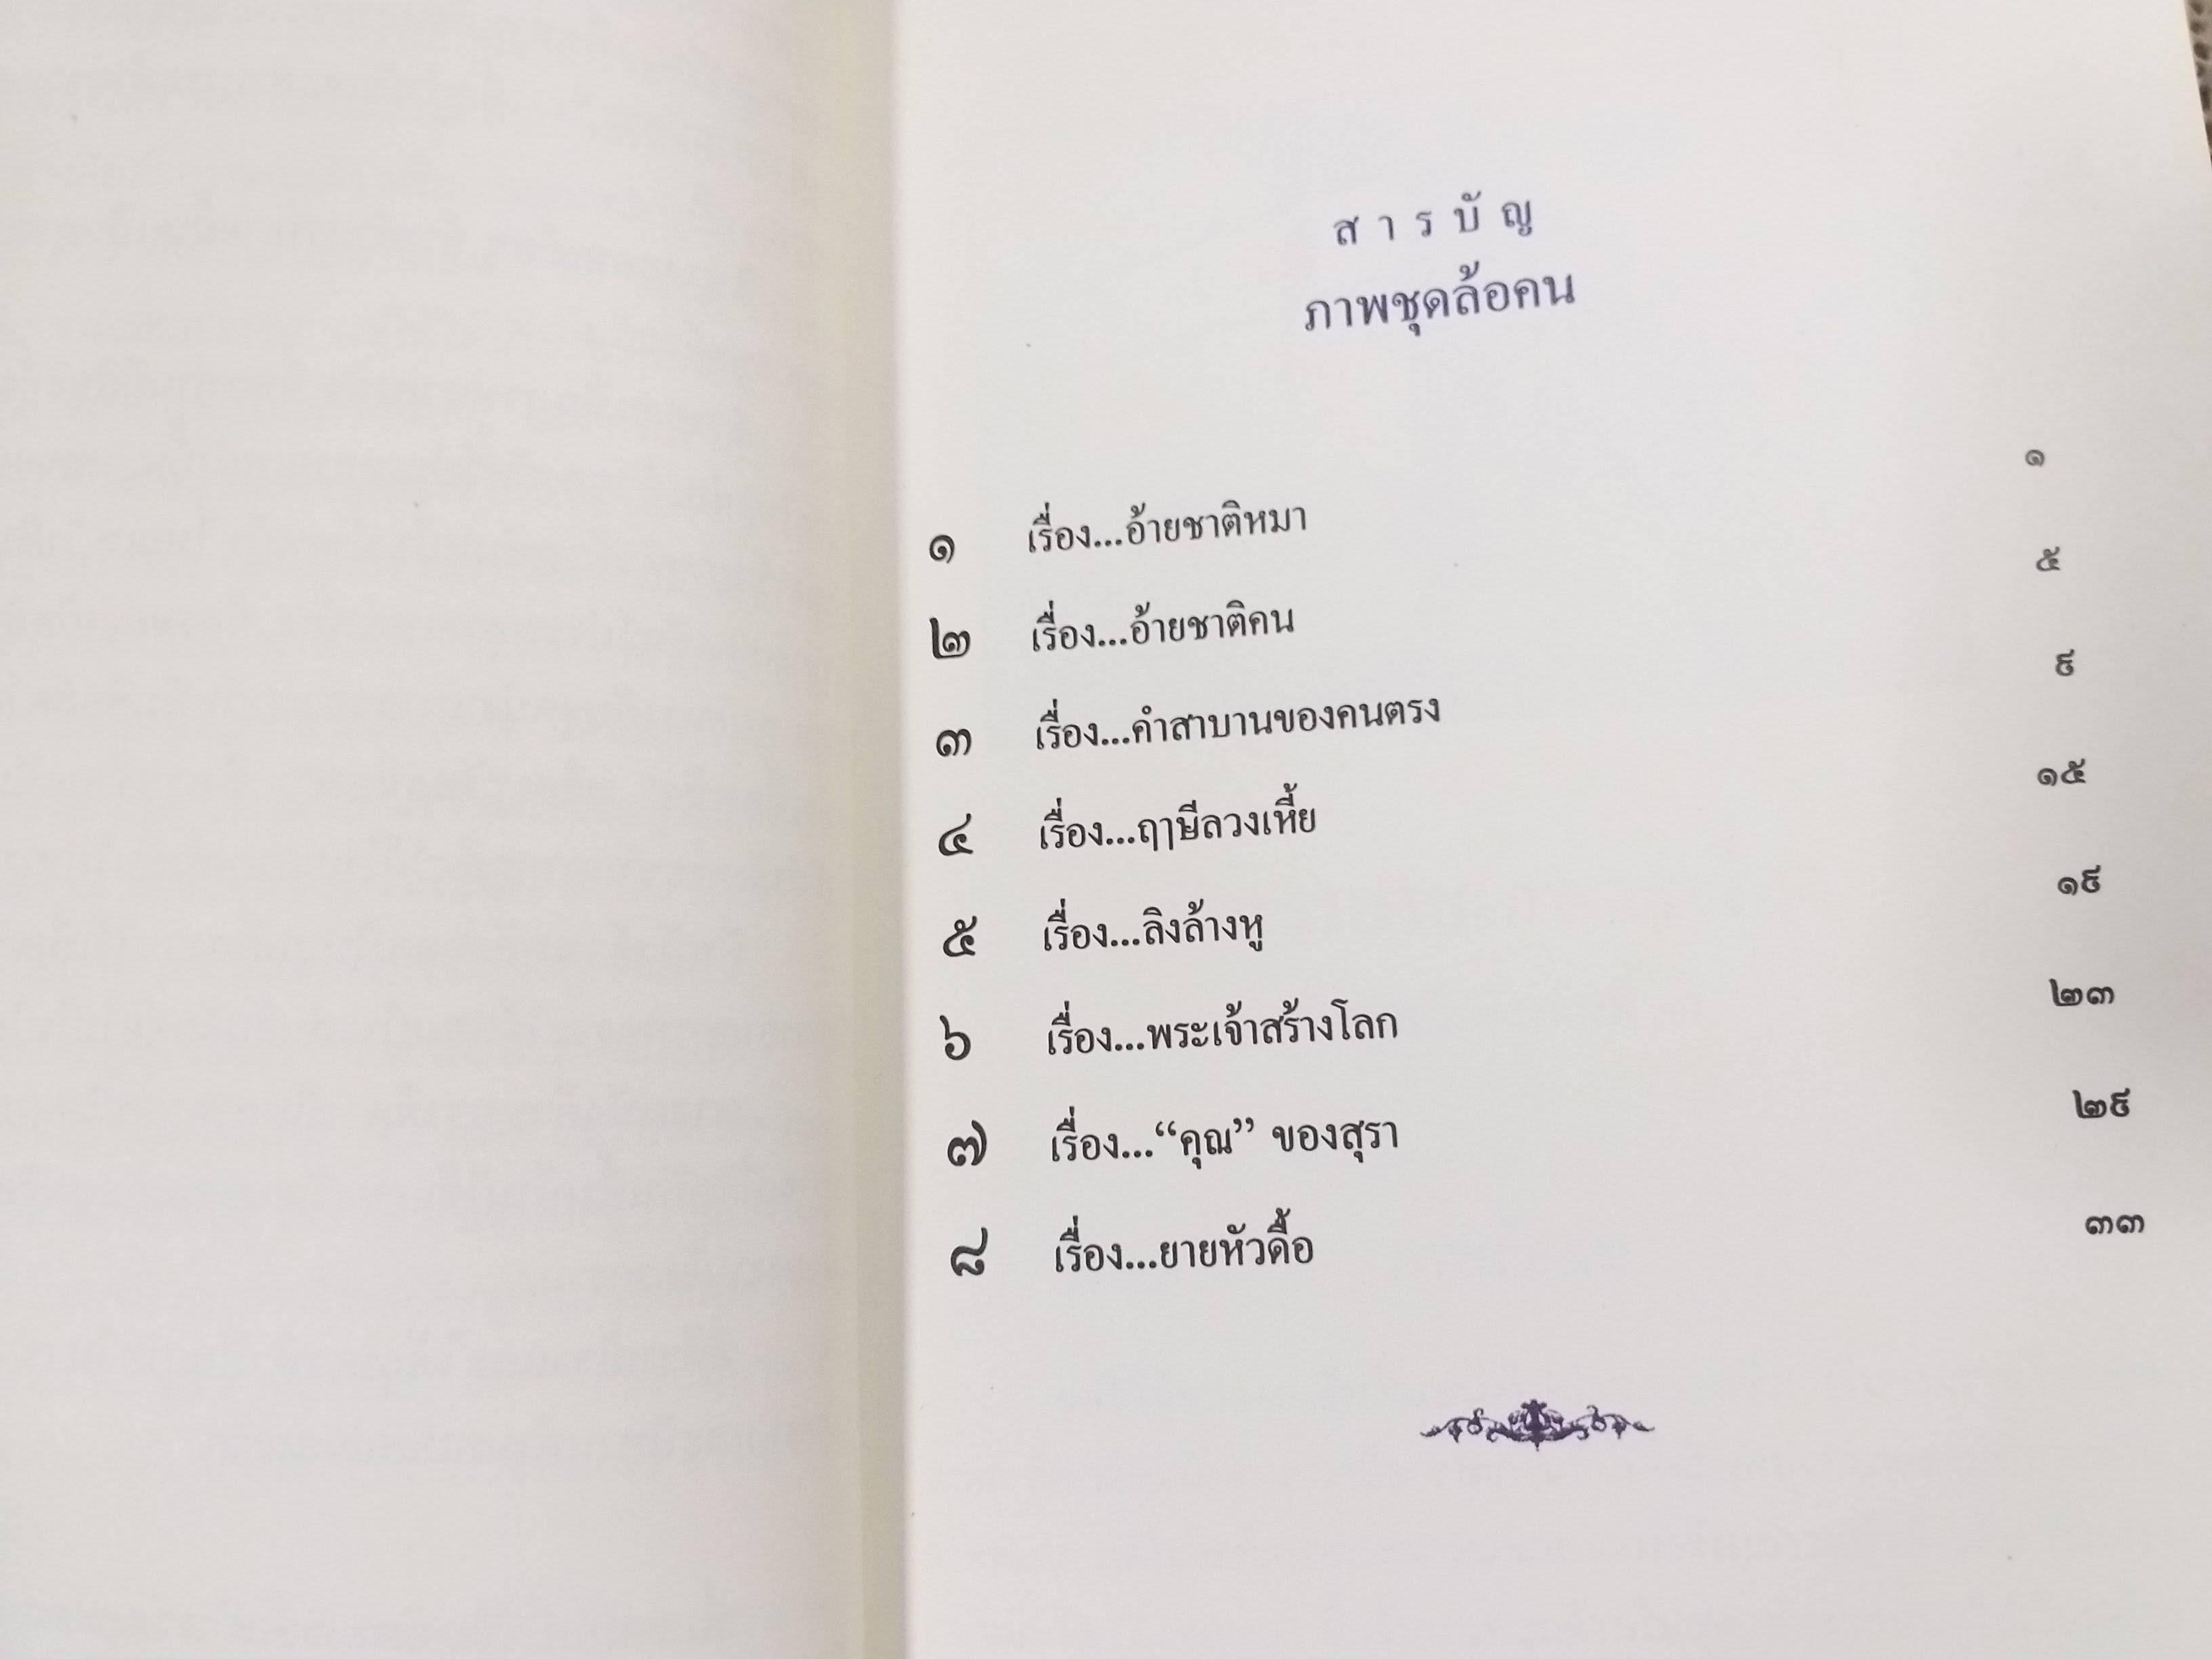 สารบัญ
ภาพชุดล้อคน
๑ เรื่อง...อ้ายชาติหมา ๑
๒ เรื่อง...อ้ายชาติคน ๕
๓ เรื่อง...คำสาบานของคนตรง ๙
๔ เรื่อง...ฤๅษีลวงเหี้ย ๑๕
๕ เรื่อง...ลิงล้างหู ๑๙
๖ เรื่อง...พระเจ้าสร้างโลก ๒๓
๗ เรื่อง...“คุณ” ของสุรา ๒๙
๘ เรื่อง...ยายหัวดื้อ ๓๓